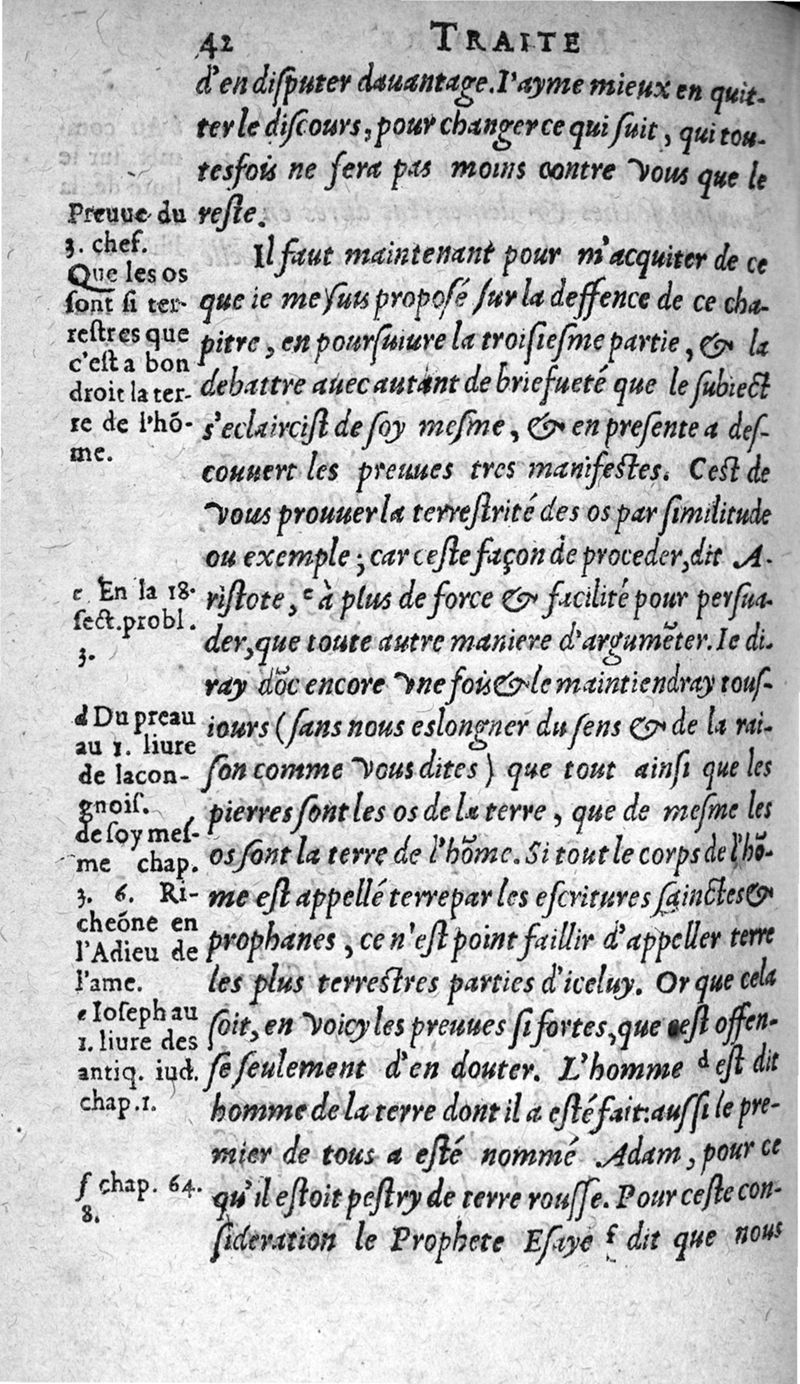 42 TRAITE
d'en disputer dauantage. I'ayme mieux en quit-
ter le discours, pour changer ce qui suit, qui tou-
tesfois ne sera pas moins contre vous que le
reste.
Il faut maintenant pour m'acquiter de ce
que ie me suis proposé sur la deffence de ce cha-
pitre, en poursuiure la troisiesme partie, & la
debattre auec autant de briefueté que le subiect
s'eclaircist de soy mesme, & en presente a des-
couuert les preuues tres manifestes. C'est de
vous prouuer la terrestrité des os par similitude
ou exemple; car ceste façon de proceder, dit A-
ristote, c à plus de force & facilité pour persua-
der, que toute autre maniere d'argumēter. Ie di-
ray dōc encore vne fois & le maintiendray tous-
iours (sans nous eslongner du sens & de la rai-
son comme vous dites) que tout ainsi que les
pierres sont les os de la terre, que de mesme les
os sont la terre de l'hōme. Si tout le corps de l'hō-
me est appellé terre par les escritures sainctes &
prophanes, ce n'est point faillir d'appeller terre
les plus terrestres parties d'iceluy. Or que cela
soit, en voicy les preuues si fortes, que cest offen-
se seulement d'en douter. L'homme d est dit
homme de la terre dont il a esté fait: aussi le pre-
mier de tous a esté nommé Adam, pour ce
qu'il estoit pestry de terre rousse. Pour ceste con-
sideration le Prophete Esaye f dit que nous
Preuue du
3. chef.
Que les os
sont si ter-
restres que
c'est a bon
droit la ter-
re de l'hō-
me.
c En la 18.
sect. probl.
3.
d Du preau
au 1. liure
de la con-
gnois.
de soy mes-
me chap.
3. 6. Ri-
cheóne en
l'Adieu de
l'ame.
e Ioseph au
1. liure des
antiq. iud.
chap. 1.
f chap. 64.
8.